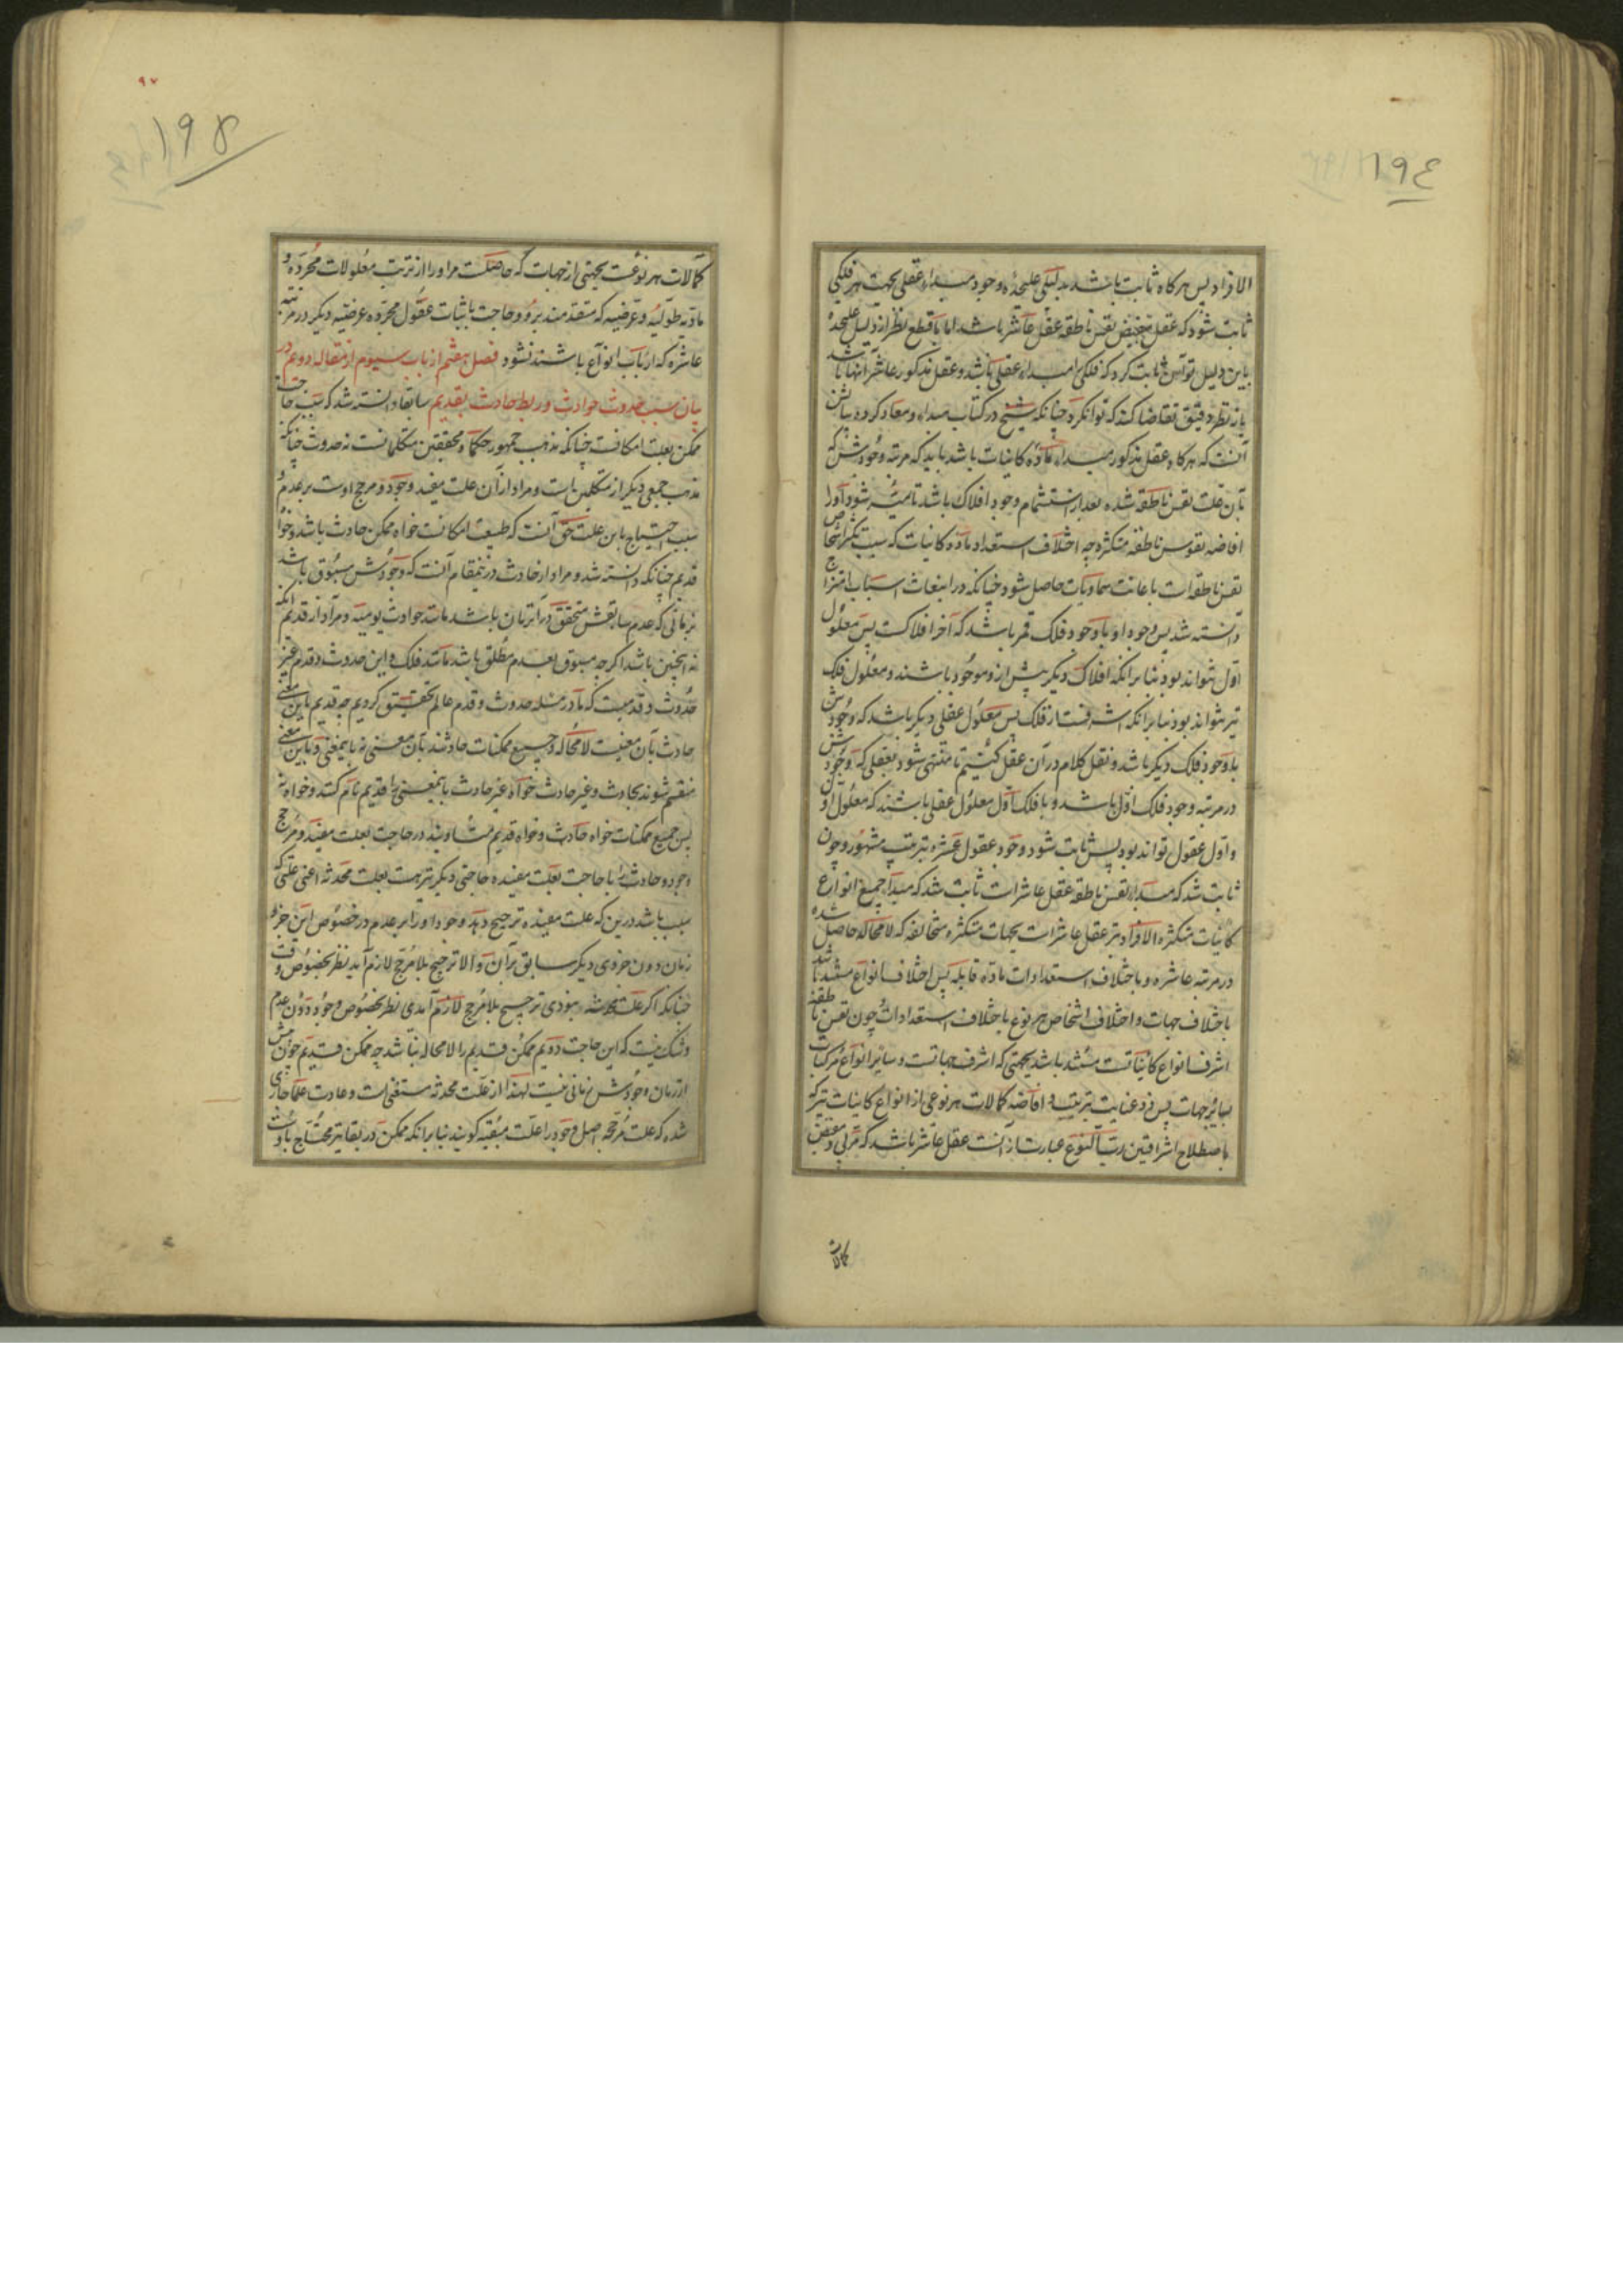 ١٩٤
الافراد پس هرکاه ثابت باشد بدلیلی علیحده وجود مبداء عقلی بجهت هر فلکی
ثابت شود که عقل مفیض نفس ناطقه عقل عاشر باشد اما با قطع نظر از دلیل علیحده
باین دلیل نتوان ثابت کرد که فلکی را مبداء عقلی باشد و عقل مذکور عاشر آنها باشد
باز نظر دقیق تقاضا کند که توانکرد چنانکه شیخ در کتاب مبداء و معاد کرده بیانش
آنست که هرکاه عقل مذکور مبداء ماده کاینات باشد باید که مرتبه وجودش که
بآن علت نفس ناطقه شده بعد از استتمام وجود افلاک باشد تا میسر شود او را
افاضه نفوس ناطقه متکثره چه اختلاف استعداد ماده کاینات که سبب تکثر اشخاص
نفس ناطقه است باعانت سماویات حاصل شود چنانکه در انبعاث اسباب امتزاج
دانسته شد پس وجود او با وجود فلک قمر باشد که آخر افلاکست پس معلول
اول نتواند بود بنا برانکه افلاک دیکر پیش ازو موجود باشند و معلول فلک
نیز نتواند بود بنا برانکه اشرفست از فلک پس معلول عقلی دیکر باشد که وجودش
با وجود فلک دیکر باشد و نقل کلام در آن عقل کنیم تا منتهی شود بعقلی که وجودش
در مرتبه وجود فلک اول باشد و با فلک اول معلول عقلی باشند که معلول اول
و اول عقول تواند بود پس ثابت شود وجود عقول عشره بترتیب مشهور و چون
ثابت شد که مبداء نفس ناطقه عقل عاشر است ثابت شد که مبداء جمیع انواع
کاینات متکثره الافراد نیز عقل عاشر است بجهات متکثره متخالفه که لامحاله حاصل شده
در مرتبه عاشره و باختلاف استعدادات ماده قابله پس اختلاف انواع مستند باشد
باختلاف جهات و اختلاف اشخاص هر نوع باختلاف استعدادات چون نفس ناطقه
اشرف انواع کاینات است مستند باشد بجهتی که اشرف جهاتست و سایر انواع مرکبات
بسایر جهات پس رب النوع
باصطلاح اشراقیین رب النوع عبارت از آنست عقل عاشر باشد که مربی و مفیض
کمالات
١٩٥
٩٧
کمالات هر نوعست بجهتی از جهات که حاصلست مر او را از ترتب معلولات مجرده و
مادیه طولیه و عرضیه که متقدمند برو و حاجت باثبات عقول مجرده عرضیه دیکر در مرتبه
عاشره که ارباب انواع باشند نشود فصل هفتم از باب سیوم از مقاله دوم در
بیان سبب حدوث حوادث و ربط حادث بقدیم سابقا دانسته شد که سبب حاجت
ممکن بعلت امکانست چنانکه مذهب جمهور حکما و محققین متکلمانست نه حدوث چنانکه
مذهب جمعی دیکر از متکلمین است و مراد از آن علت مفید وجود و مرجح اوست بر عدم و
سبب احتیاج باین علت حق آنست که طبیعت امکانست خواه ممکن حادث باشد و خواه
قدیم چنانکه دانسته شد و مراد از حادث درینمقام آنست که وجودش مسبوق باشد
بزمانی که عدم سابقش متحقق در آنزمان باشد مانند حوادث یومیه و مراد از قدیم آنکه
نه اینچنین باشد اکرچه مسبوق بعدم مطلق باشد مانند فلک و این حدوث و قدم غیر
حدوث و قدمیست که ما در مسئله حدوث و قدم عالم تحقیق کردیم چه قدیم باین معنی
حادث بآن معنیست لامحاله و جمیع ممکنات حادثند بآن معنی نه باینمعنی و باین معنی
منقسم شوند بحادث و غیر حادث خواه غیر حادث باینمعنی را قدیم نام کنند و خواه نه
پس جمیع ممکنات خواه حادث و خواه قدیم متساویند در حاجت بعلت مفیده و مرجح
وجود و حادث را با حاجت بعلت مفیده حاجتی دیکر نیز هست بعلت محدثه اعنی علتی که
سبب باشد درین که علت مفیده ترجیح دهد وجود او را بر عدم در خصوص این جزو
زمان دون جزوی دیکر سابق بر آن و الا ترجیح بلا مرجح لازم آید نظر بخصوص وقت
چنانکه اکر علت محدثه نبودی ترجیح بلا مرجح لازم آمدی نظر بخصوص وجود دون عدم
و شک نیست که این حاجت دویم ممکن قدیم را لامحاله نباشد چه ممکن قدیم چون پیش
از زمان وجودش زمانی نیست لهذا از علت محدثه مستغنی است و عادت علما جاری
شده که علت مرجحه اصل وجود را علت مبقیه کویند بنا برانکه ممکن در بقا نیز محتاج باوست